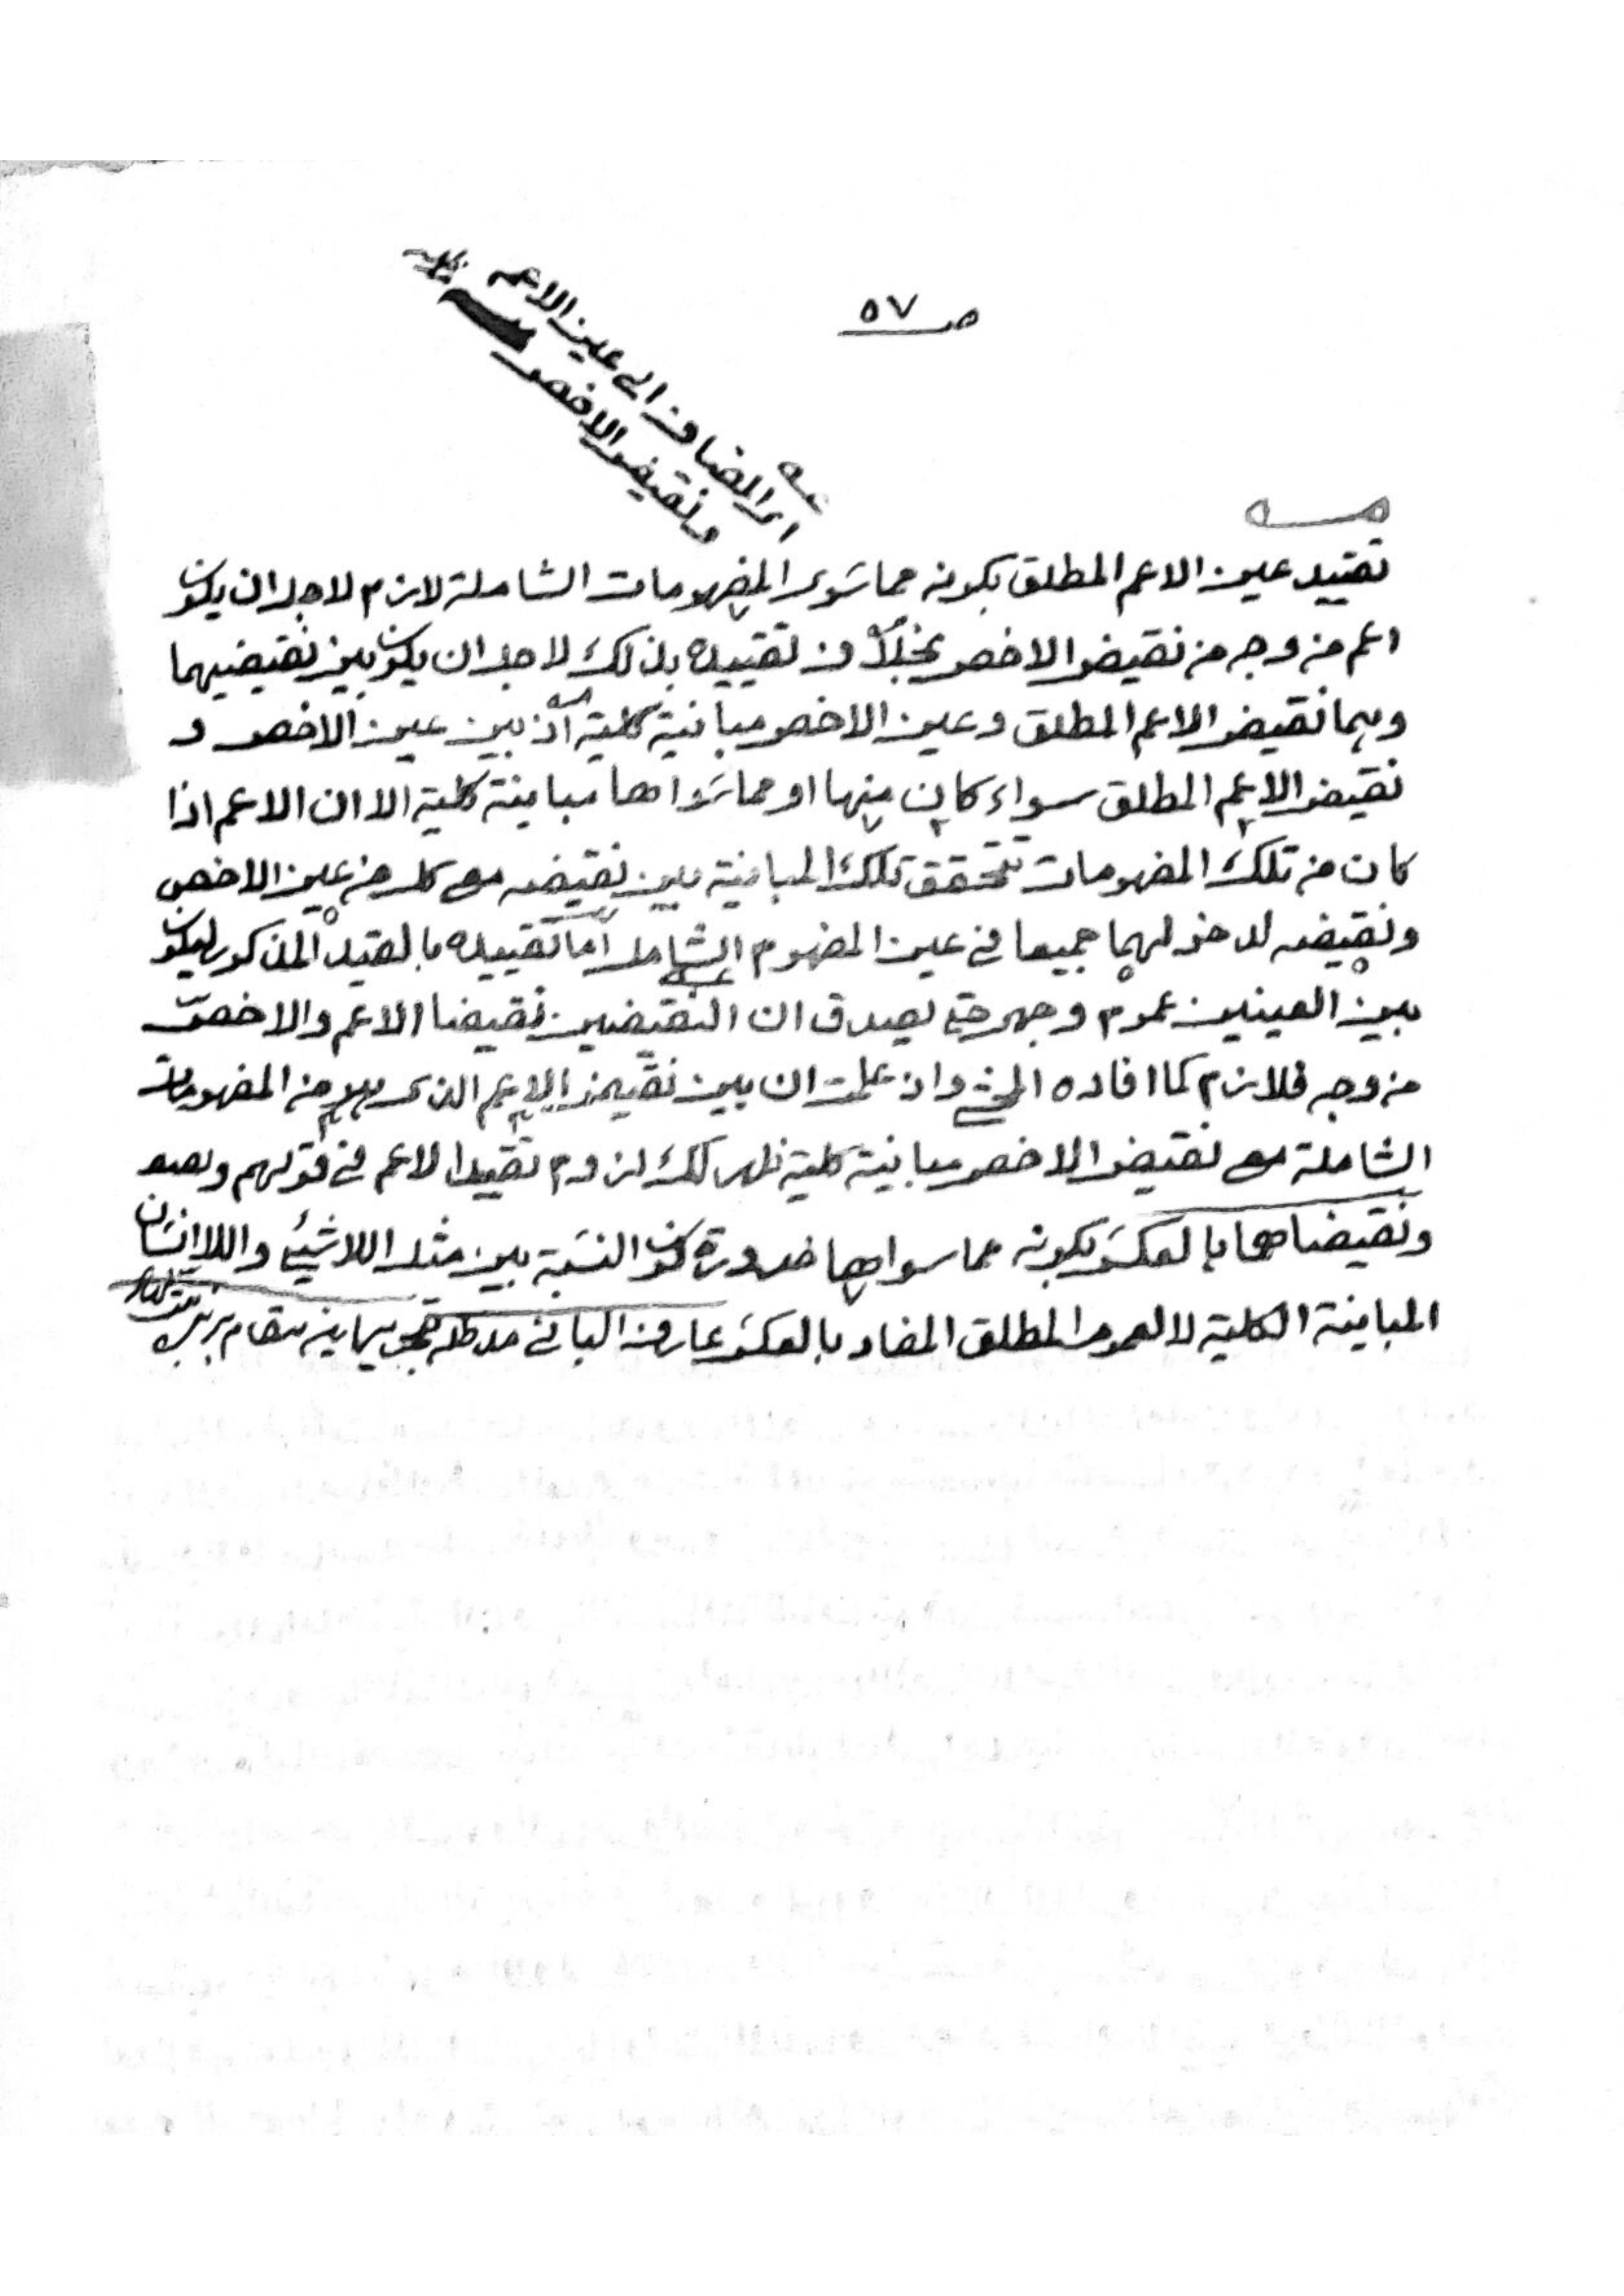 ص ٥٧
اى المضاف الى عين الاعم
ونقيض الاخص
تقييد عين الاعم المطلق بكونه مما سوى المفهومات الشاملة لازم لاجل ان يكون
اعم من وجه من نقيض الاخص بخلاف تقييده بذلك لاجل ان يكون بين نقيضيهما
وهما نقيض الاعم المطلق وعين الاخص مباينة كلية اذ بين عين الاخص و
نقيض الاعم المطلق سواء كان منها او مما سواها مباينة كلية الا ان الاعم اذا
كان من تلك المفهومات تتحقق تلك المباينة بين نقيضه مع كل من عين الاخص
ونقيضه لدخولهما جميعا في عين المفهوم الشامل اما تقييده بالقيد المذكور ليكون
بين العينين عموم وجهى حتى يصدق ان النقيضين نقيضا الاعم والاخص
من وجه فلازم كما افاده المحشى واذ علمت ان بين نقيض الاعم الذى هو من المفهومات
الشاملة مع نقيض الاخص مباينة كلية ظهر لك لزوم تقييد الاعم في قولهم
ونقيضاهما بالعكس بكونه مما سواها ضرورة كون النسبة بين مثل اللاشئ واللاانسان
المباينة الكلية لا العموم المطلق المفاد بالعكس عارف البانى